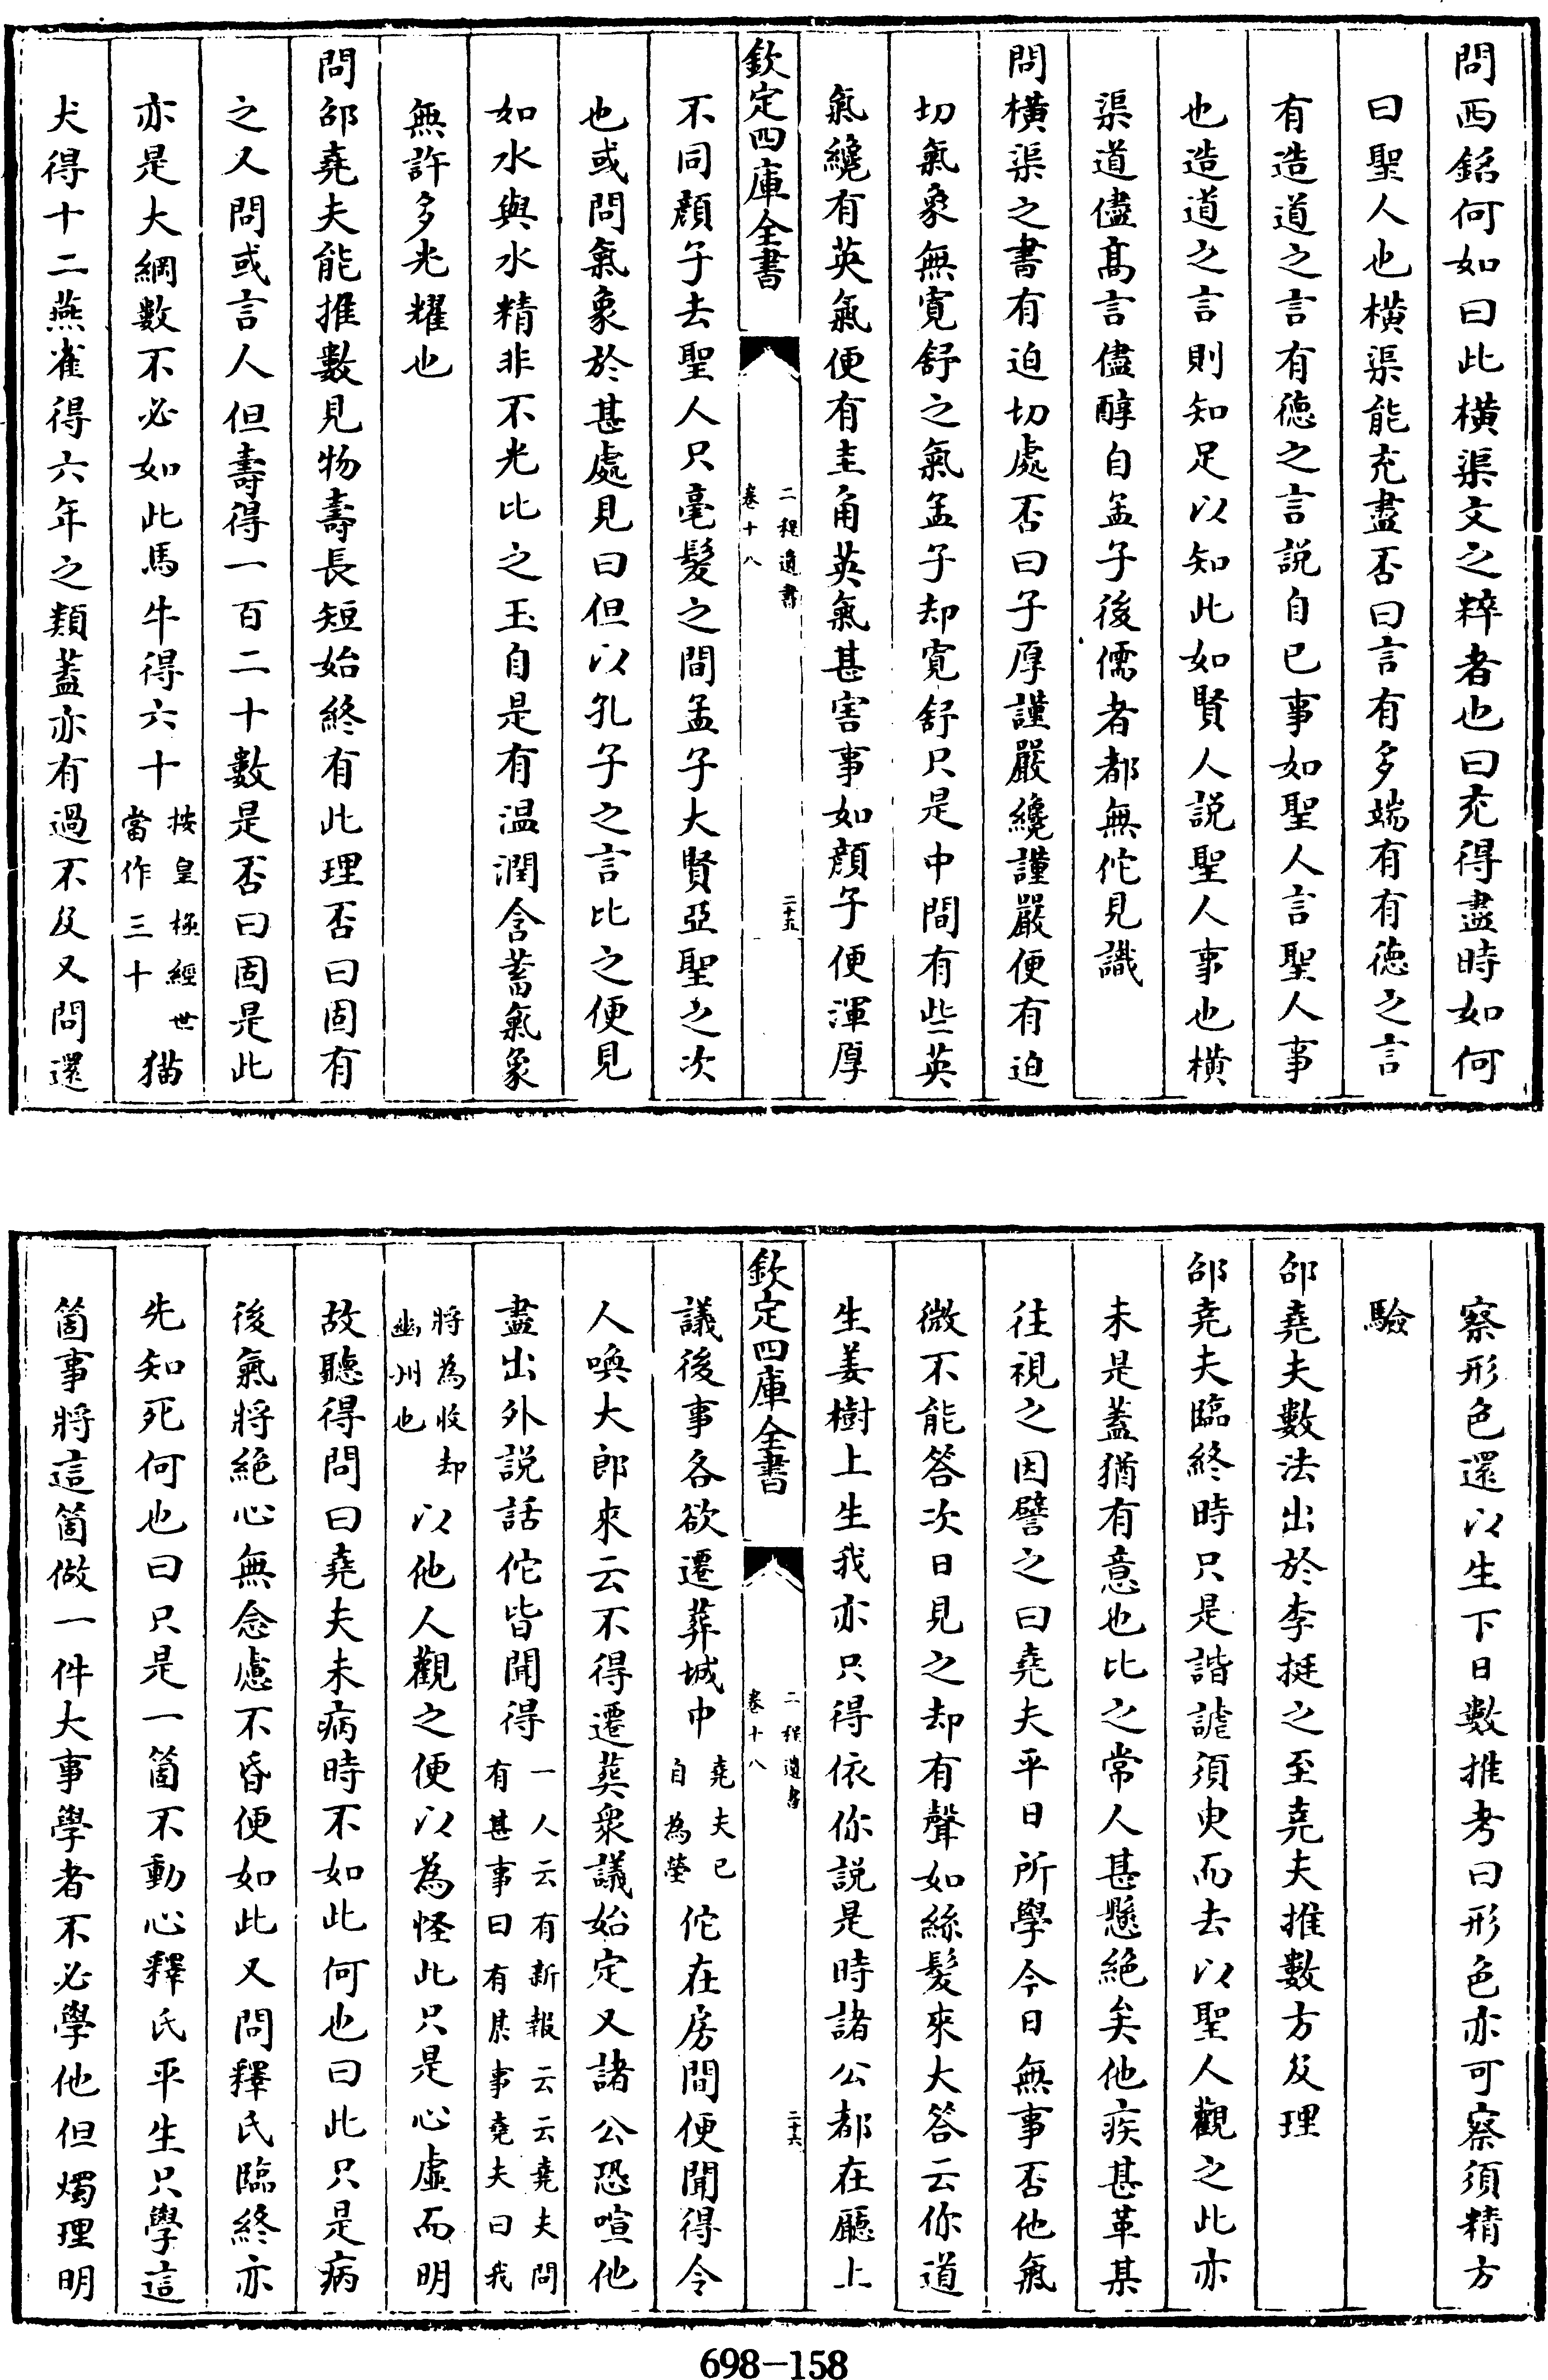 問西銘何如曰此橫渠文之粹者也曰充得盡時如何
曰聖人也橫渠能充盡否曰言有多端有有徳之言
有造道之言有徳之言說自已事如聖人言聖人事
也造道之言則知足以知此如賢人說聖人事也橫
渠道儘高言儘醇自孟子後儒者都無佗見識
問橫渠之書有迫切處否曰子厚謹嚴纔謹嚴便有迫
切氣象無寛舒之氣孟子却寛舒只是中間有些英
氣纔有英氣便有圭角英氣甚害事如顔子便渾厚
欽定四庫全書
二程遺書
卷十八
二十五
不同顔子去聖人只毫髪之間孟子大賢亞聖之次
也或問氣象於甚處見曰但以孔子之言比之便見
如水與水精非不光比之玉自是有温潤含蓄氣象
無許多光耀也
問邵堯夫能推數見物壽長短始終有此理否曰固有
之又問或言人但壽得一百二十數是否曰固是此
亦是大綱數不必如此馬牛得六十按皇極經世當作三十猫
犬得十二燕雀得六年之類蓋亦有過不及又問還
察形色還以生下日數推考曰形色亦可察須精方
驗
邵堯夫數法出於李挺之至堯夫推數方及理
邵堯夫臨終時只是諧謔須臾而去以聖人觀之此亦
未是蓋猶有意也比之常人甚懸絶矣他疾甚革某
往視之因譬之曰堯夫平日所學今日無事否他氣
微不能答次日見之却有聲如絲髪來大答云你道
生姜樹上生我亦只得依你說是時諸公都在廳上
欽定四庫全書
二程遺書
卷十八
二十六
議後事各欲遷葬城中堯夫已自為塋佗在房間便聞得令
人喚大郎來云不得遷葬衆議始定又諸公恐喧他
盡出外說話佗皆聞得一人云有新報云云堯夫問有甚事曰有某事堯夫曰我
將為收却幽州也以他人觀之便以為怪此只是心虛而明
故聽得問曰堯夫未病時不如此何也曰此只是病
後氣將絶心無念慮不昏便如此又問釋氏臨終亦
先知死何也曰只是一箇不動心釋氏平生只學這
箇事將這箇做一件大事學者不必學他但燭理明
698-158